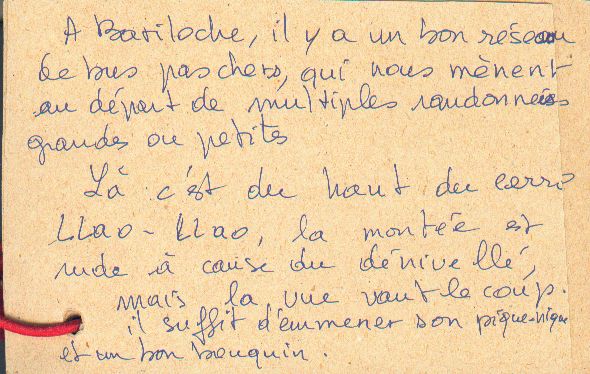 A Bariloche, il y a un bon réseau
de bus pas chers, qui nous mènent
au départ de multiples randonnées
grandes ou petites
Là c'est du haut du cerro
LLao-LLao, la montée est
rude à cause du dénivellé,
mais la vue vaut le coup.
il suffit d'emmener son pique-nique
et un bon bouquin.